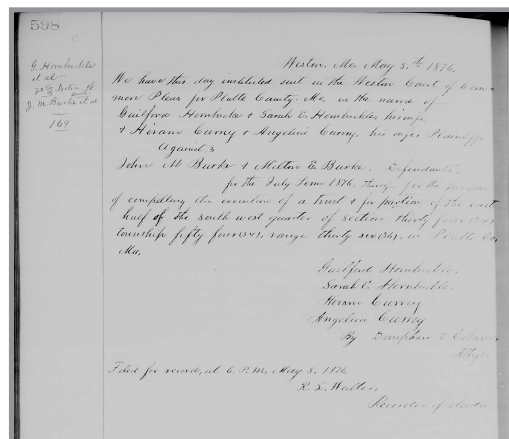 598
G. Hornbuckle
et al
vs Notice of
suit
J. M. Burke et al
164
Weston, Mo, May 5,th 1876,
We have this day instituted suit in the Weston Court of Com
mon Pleas for Platte County Mo, in the name of
Guilford Hornbuckle & Sarah E. Hornbuckle his wife
& Hiram Curny & Angeline Curny, his wife Plaintiffs
Against
John M Burke & Milton E Burke, Defendants,
for the July Term 1876, for the purpose
of compelling the execution of a trust & for partion of the east
half of the south west quarter of section thirty four (34)
township fifty four (54), range thirty six (36), in Platte Co
Mo,
Guilford Hornbuckle,
Sarah E. Hornbuckle,
Hiram Curny
Angeline Curny
By Doniphan &
Attys
Filed for record, at 6. P.M. May 5, 1876
Walton
Recorder of deeds